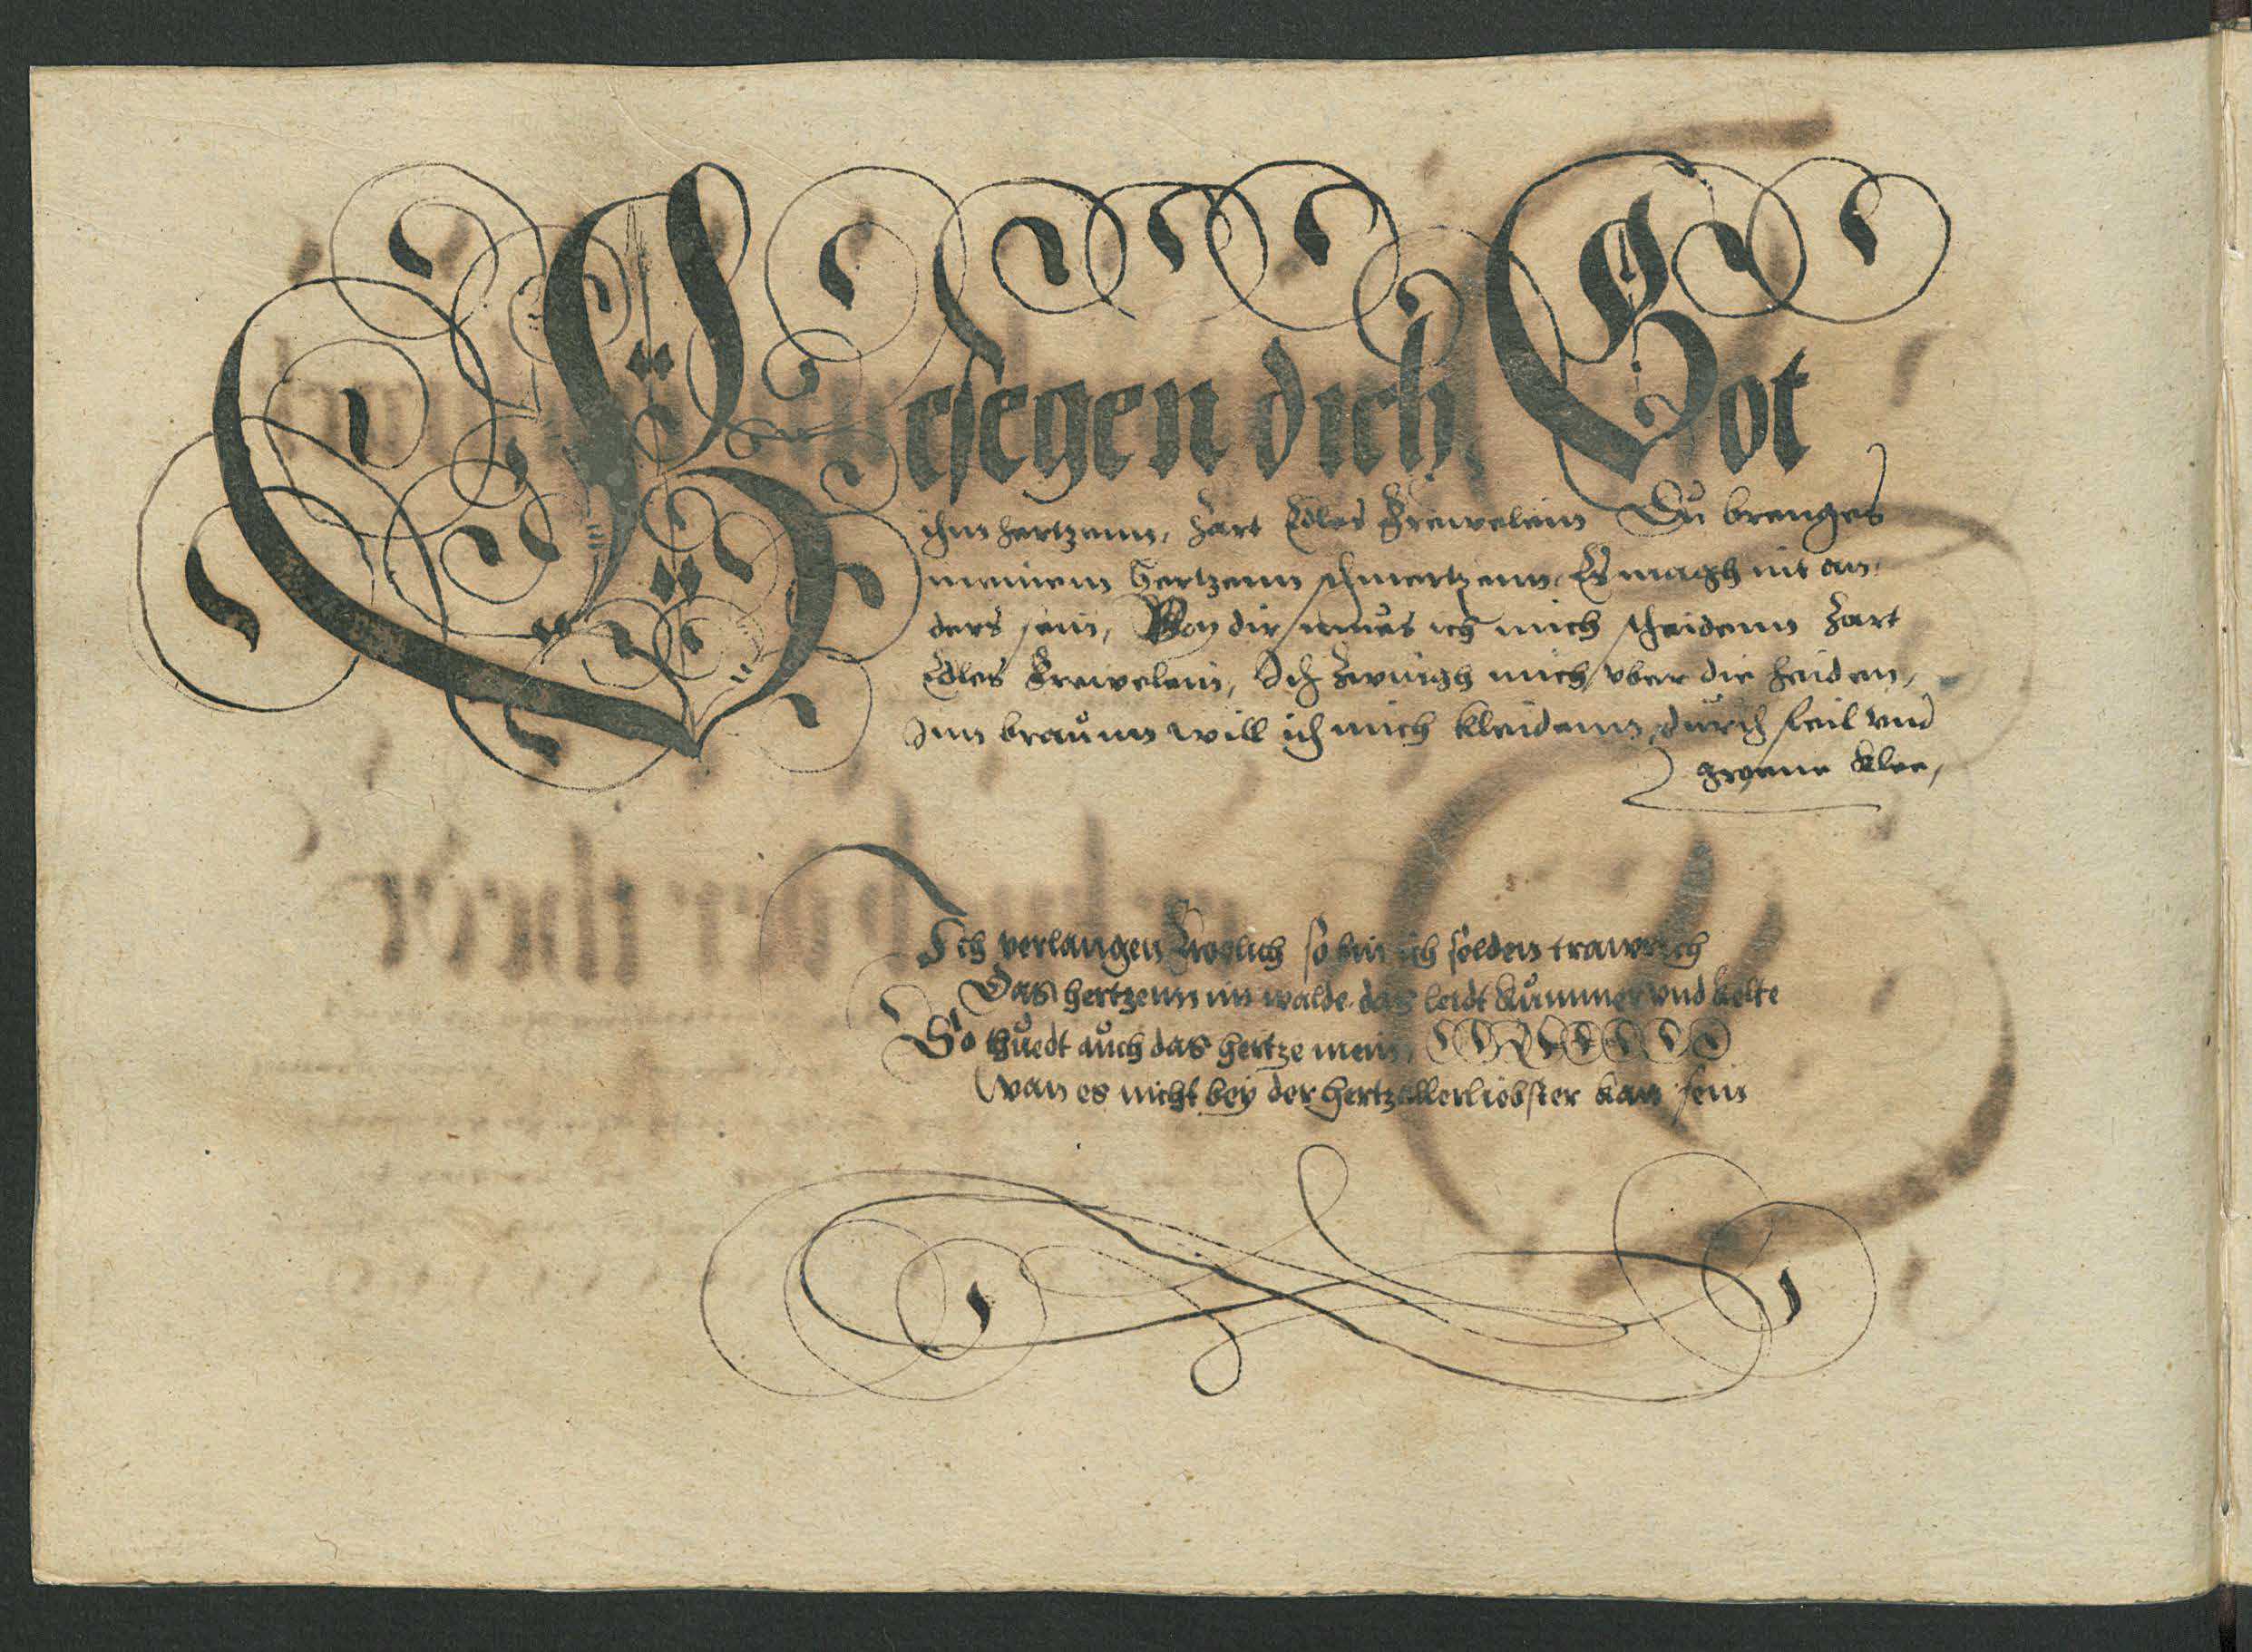 Gesegen dich Got
ihm hertzenn, Zart Edles Frewelein Du brenges
meinem Hertzenn schmertzenn, Es magh nit an¬
ders sein, Von dir mues ich mich scheidenn Zart
Edles Frewelein, Ich zwingh mich vber die heiden,
Inn braunn will ich mich kleidenn durch feil vnd
groene klee,
Ich verlangen froelich so bin ich solden trawrich
Das hertzenn im walde das leidt kummer vnd kelte
So thuedt auch das hertze mein,
wan es nicht bey der hertzallerliebster kan sein